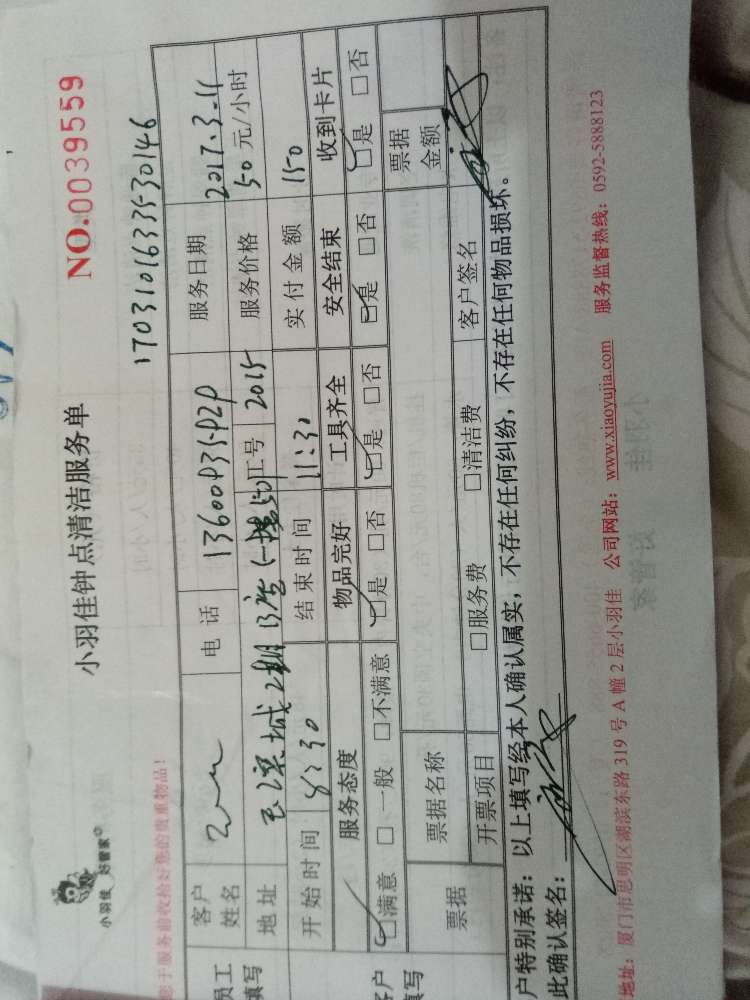 小羽佳 好管家
小羽佳钟点清洁服务单
NO.0039559
您于服务前收拾好您的贵重物品!
1703101633530146
员工
填写
客户
姓名
电 话
服务日期 2017.3.11
地 址
工号 2015
服务价格 50 元/小时
开始时间 8:30
结束时间 11:30
实付金额 150
客户
填写
服务态度 物品完好 工具齐全 安全结束 收到卡片
☑满意 □一般 □不满意 ☑是 □否 ☑是 □否 ☑是 □否 ☑是 □否
票据 票据名称 票据
金额
开票项目 □服务费 □清洁费 客户签名
户特别承诺:以上填写经本人确认属实,不存在任何纠纷,不存在任何物品损坏。
此确认签名:
地址:厦门市思明区湖滨东路 319 号 A 幢 2 层小羽佳 公司网站:www.xiaoyujia.com 服务监督热线:0592-5888123